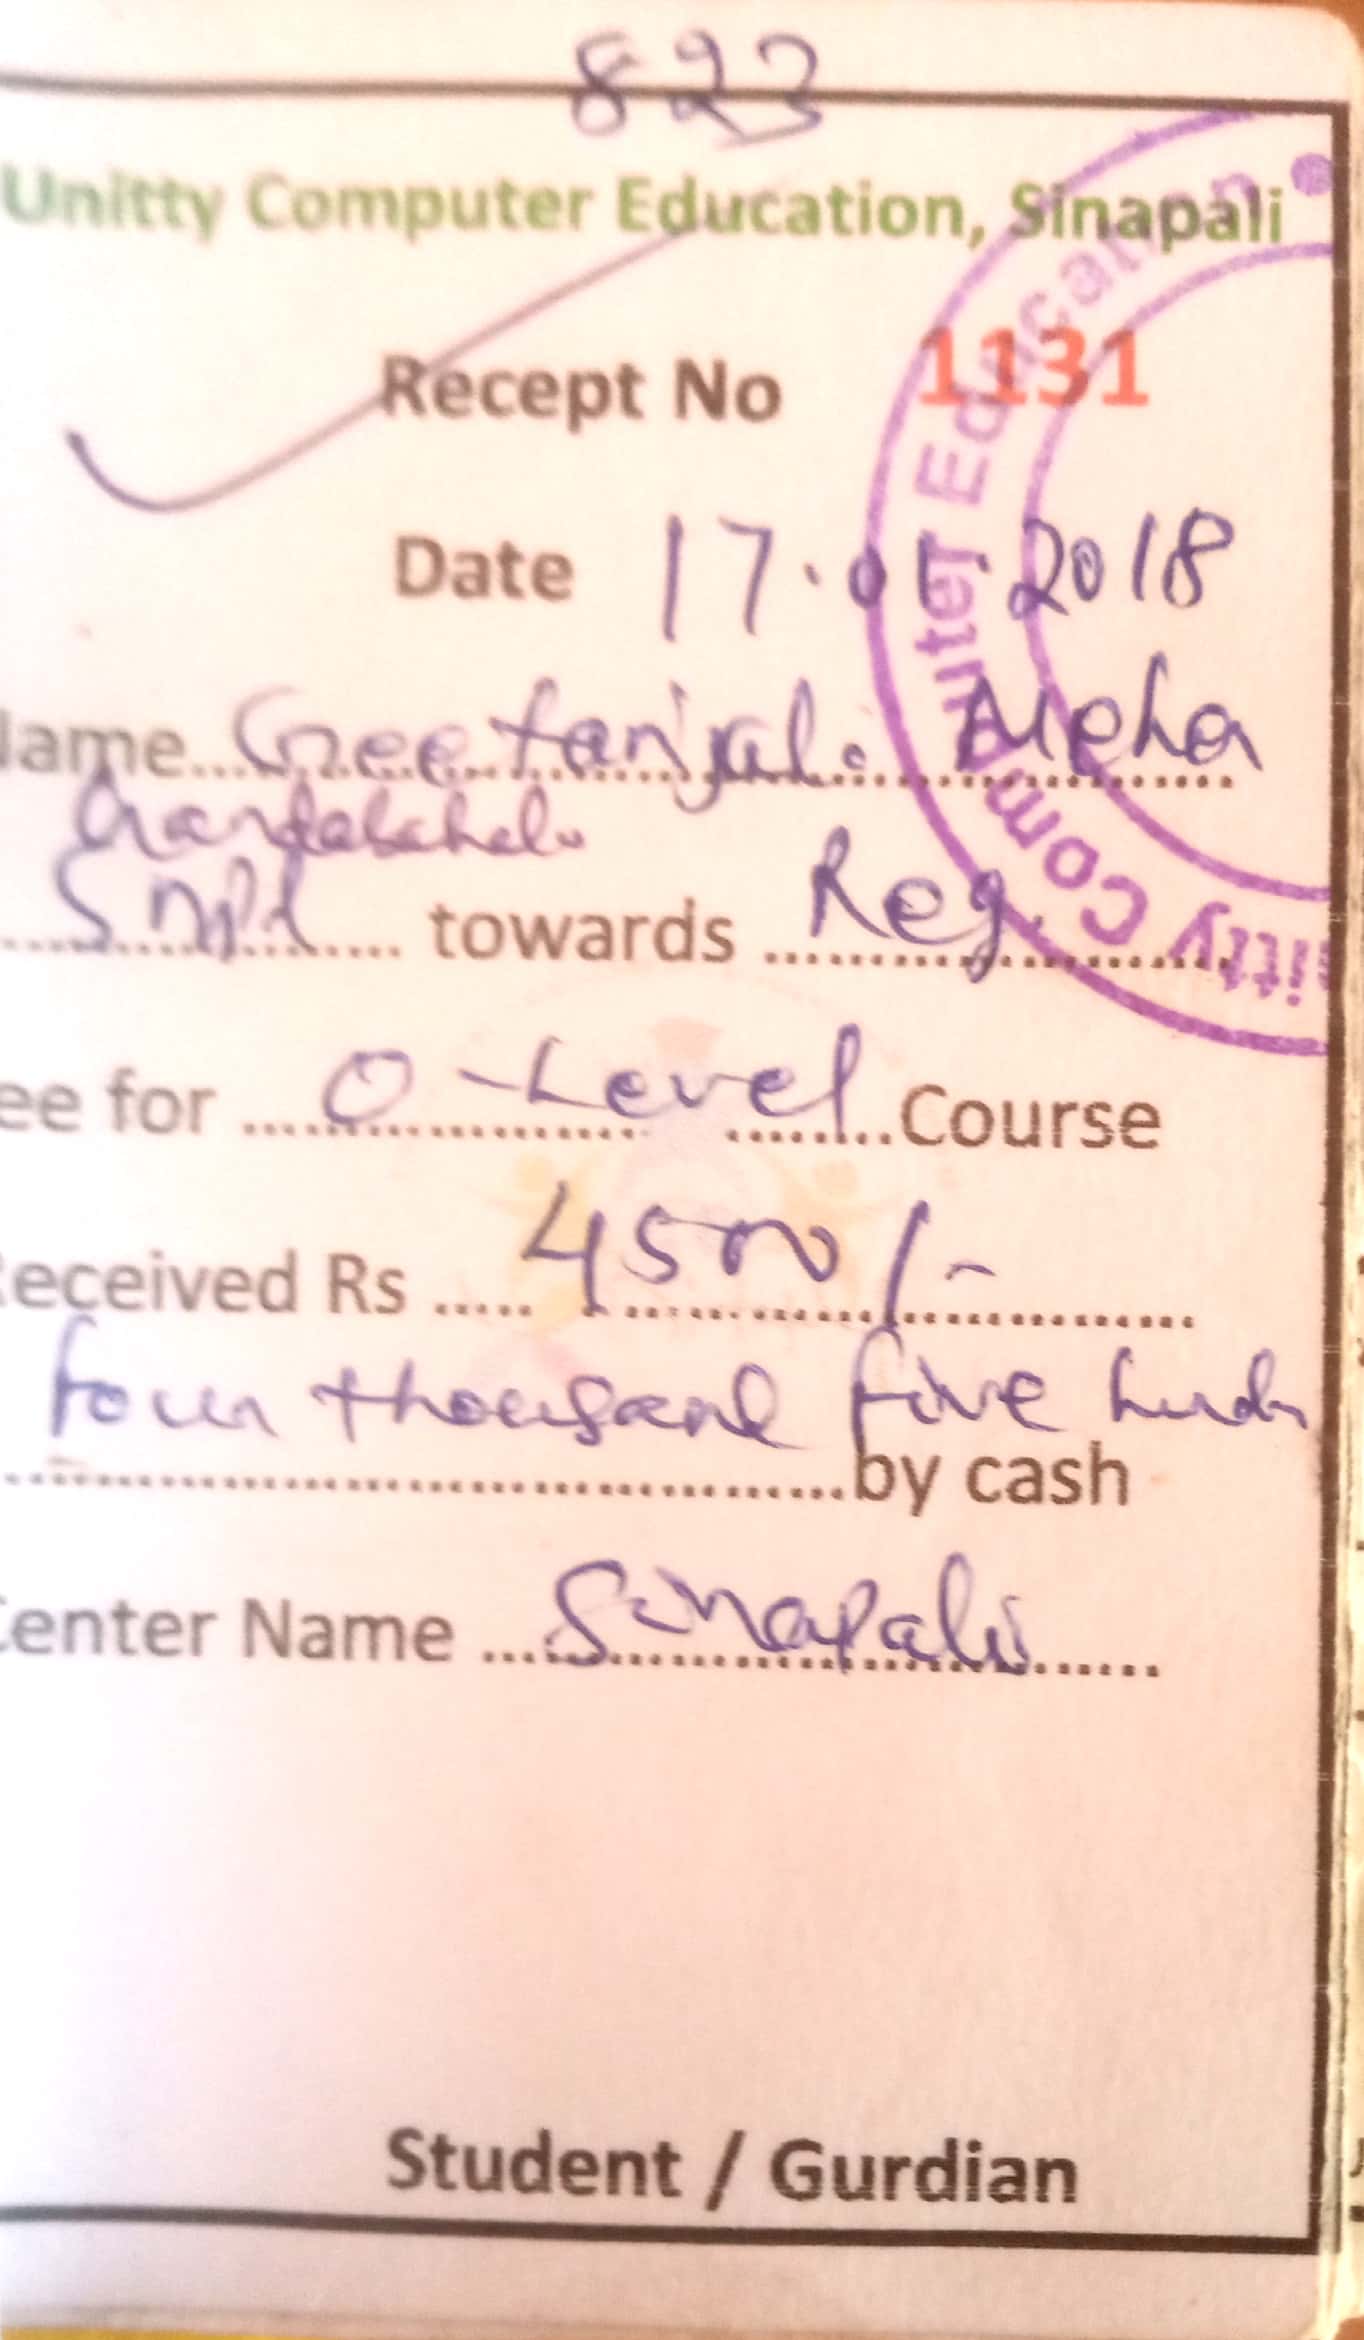 823
Unitty Computer Education, Sinapali
Recept No 1131
Date 17. 2018
ame Geetanjali Meher
Snpl towards Reg.
ee for O-Level Course
eceived Rs 4500/-
four thousand five
by cash
enter Name Sinapali
Student / Gurdian
itty Computer Education